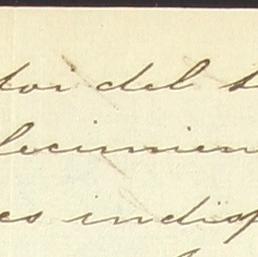 toi del s
lecimien
es indisp